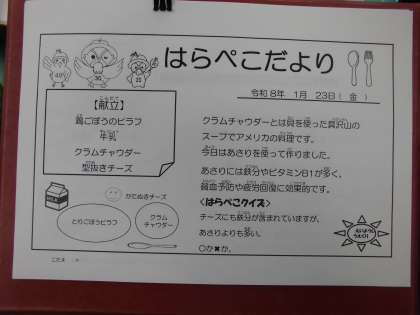 はらぺこだより
令和8年 1月 23日( 金 )
【献立】
鶏ごぼうのピラフ
牛乳
クラムチャウダー
型抜きチーズ
かたぬきチーズ
とりごぼうピラフ
クラム
チャウダー
クラムチャウダーとは貝を使った具沢山の
スープでアメリカの料理です。
今日はあさりを使って作りました。
あさりには鉄分やビタミンB1が多く、
貧血予防や疲労回復に効果的です。
<はらぺこクイズ>
チーズにも鉄分が含まれていますが、
あさりよりも多い。
○か✖か。
こたえ